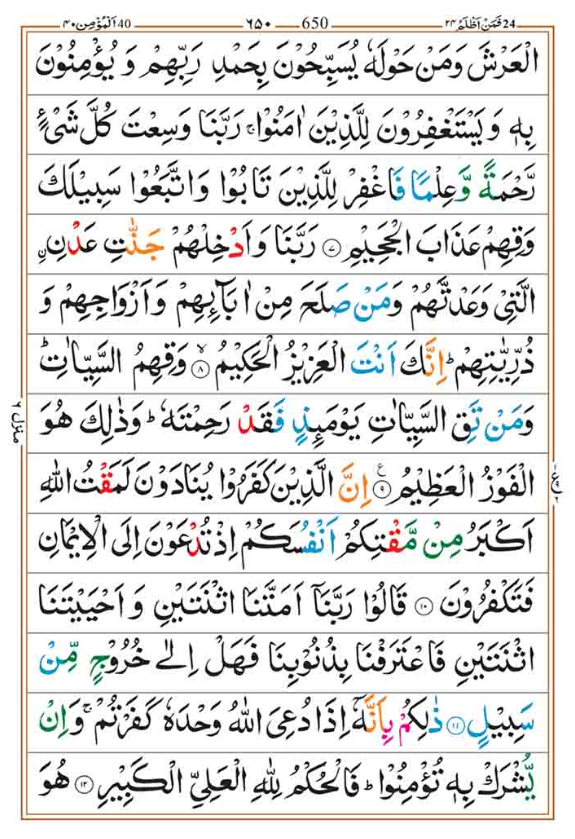 24 فَمَنْ اَظْلَمُ ٢٤
650 ٦٥٠
40 اَلْمُؤْمِن ٤٠
الْعَرْشَ وَمَنْ حَوْلَهٗ يُسَبِّحُوْنَ بِحَمْدِ رَبِّهِمْ وَ يُؤْمِنُوْنَ
بِهٖ وَ يَسْتَغْفِرُوْنَ لِلَّذِيْنَ اٰمَنُوْا ۚ رَبَّنَا وَسِعْتَ كُلَّ شَىْءٍ
رَّحْمَةً وَّعِلْمًا فَاغْفِرْ لِلَّذِيْنَ تَابُوْا وَ اتَّبَعُوْا سَبِيْلَكَ
وَقِهِمْ عَذَابَ الْجَحِيْمِ ۝٧ رَبَّنَا وَاَدْخِلْهُمْ جَنّٰتِ عَدْنِ ِۨ
الَّتِىْ وَعَدْتَّهُمْ وَمَنْ صَلَحَ مِنْ اٰبَآئِهِمْ وَ اَزْوَاجِهِمْ وَ
ذُرِّيّٰتِهِمْ ؕ اِنَّكَ اَنْتَ الْعَزِيْزُ الْحَكِيْمُ ۙ۝٨ وَقِهِمُ السَّيِّاٰتِ ؕ
وَمَنْ تَقِ السَّيِّاٰتِ يَوْمَئِذٍ فَقَدْ رَحِمْتَهٗ ؕ وَذٰلِكَ هُوَ
الْفَوْزُ الْعَظِيْمُ ۝٩ ع اِنَّ الَّذِيْنَ كَفَرُوْا يُنَادَوْنَ لَمَقْتُ اللّٰهِ
اَكْبَرُ مِنْ مَّقْتِكُمْ اَنْفُسَكُمْ اِذْ تُدْعَوْنَ اِلَى الْاِيْمَانِ
فَتَكْفُرُوْنَ ۝١٠ قَالُوْا رَبَّنَاۤ اَمَتَّنَا اثْنَتَيْنِ وَ اَحْيَيْتَنَا
اثْنَتَيْنِ فَاعْتَرَفْنَا بِذُنُوْبِنَا فَهَلْ اِلٰى خُرُوْجٍ مِّنْ
سَبِيْلٍ ۝١١ ذٰلِكُمْ بِاَنَّهٗۤ اِذَا دُعِىَ اللّٰهُ وَحْدَهٗ كَفَرْتُمْ ۚ وَاِنْ
يُّشْرَكْ بِهٖ تُؤْمِنُوْا ؕ فَالْحُكْمُ لِلّٰهِ الْعَلِىِّ الْكَبِيْرِ ۝١٢ هُوَ
منزل ٦